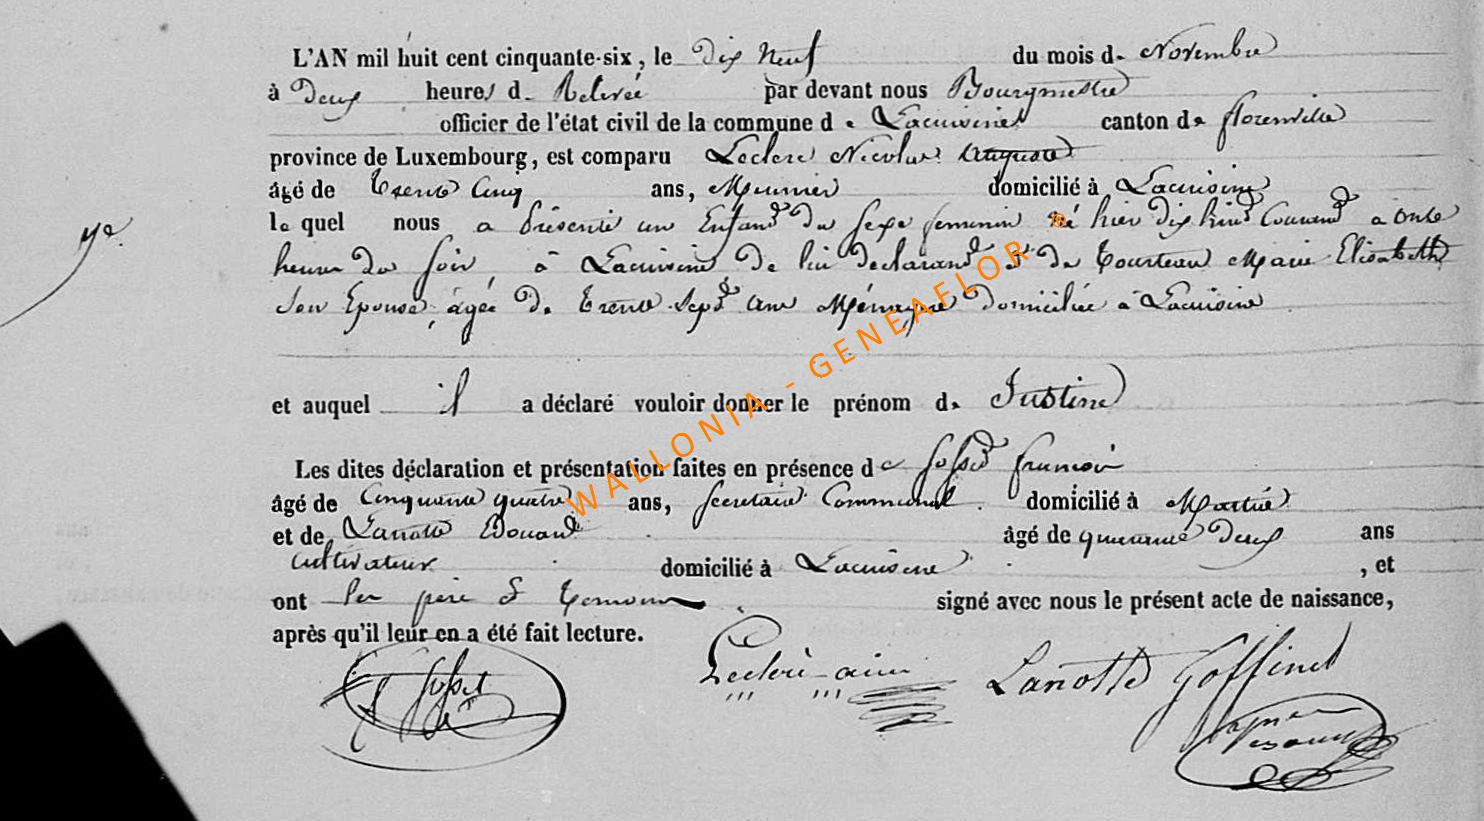 L'AN mil huit cent cinquante-six, le dix neuf du mois de Novembre
à Deux heures de Relevée par devant nous Bourgmestre
officier de l'état civil de la commune de Lacuisine canton de florenville
province de Luxembourg, est comparu Leclere Nicolas Auguste
âgé de trente Cinq ans, Meunier domicilié à Lacuisine
le quel nous a présenté un Enfant du sexe feminin né hier dix huit Courant à onze
heures du soir, à Lacuisine de lui declarant & de Tourteau Marie Elisabeth
Son Epouse, âgée de trente Sept ans Ménagère domiciliée à Lacuisine
et auquel il a déclaré vouloir donner le prénom de Justine
Les dites déclaration et présentation faites en présence de françois
âgé de Cinquante quatre ans, Secretaire Communal domicilié à Martué
et de Lanotte Edouard âgé de quarante Deux ans
Cultivateur domicilié à Lacuisine, et
ont les père & temoins signé avec nous le présent acte de naissance,
après qu'il leur en a été fait lecture.
Lanotte Goffinet
WALLONIA - GENEAFLOR